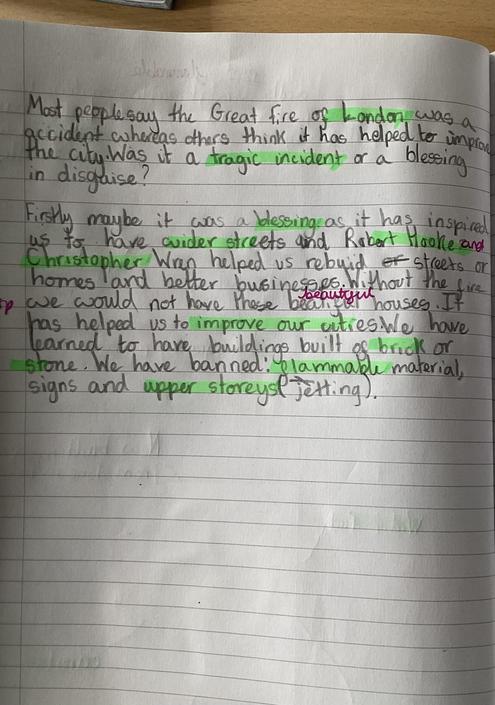 Most people say the Great fire of London was a
accident whereas others think it has helped to improve
the city. Was it a tragic incident or a blessing
in disguise?
Firstly maybe it was a blessing as it has inspired
us to have wider streets and Robert Hooke and
Christopher Wren helped us rebuid or streets or
homes and better businesses. Without the fire
beautiful
sp we would not have these beatiful houses. It
has helped us to improve our citries. We have
learned to have buildings built of brick or
stone. We have banned: flammable material,
signs and upper storeys (jetting).